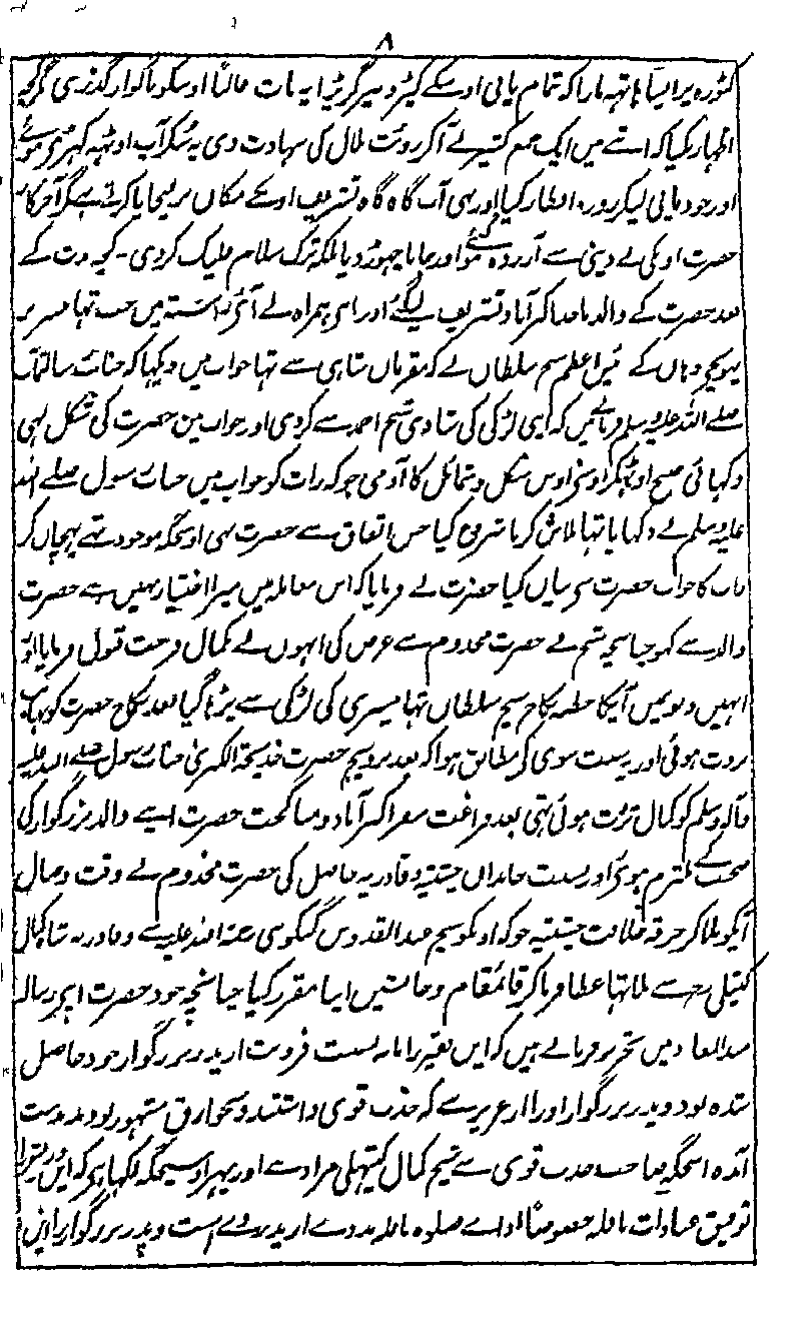 ۸
کٹورہ پر ایسا ہاتہہ مارا کہ تمام پانی اوسکے کپڑوں پر گر پڑا یہ بات غالباً اوسکو ناگوار گذری گرچہ
اظہار نکیا کہ اتنے میں ایک جمع کثیر نے آکر روئت ہلال کی شہادت دی یہ سنکر آپ اوٹہہ کہڑے ہوئے
اور خود پانی لیکر روزہ افطار کیا اور یہی آپ گاہ گاہ تشریف اوسکے مکان پر لیجایا کرتے تہے مگر آخرکار
حضرت اوسکی بے دینی سے آزردہ ہو گئے اور جانا چہوڑ دیا بلکہ ترک سلام علیک کردی - کچہ مدت کے
بعد حضرت کے والد ماجد اکبرآباد تشریف لیگئے اور اپنے ہمراہ لے آئے راستہ میں جب تہانیسر پر
پہونچے وہاں کے رئیس اعظم شیخ سلطان نے کہ مقربان شاہی سے تہا خواب میں دیکہا کہ جناب رسالتمآب
صلے اللہ علیہ وسلم فرماتے ہیں کہ اپنی لڑکی کی شادی شیخ احمد سے کردی اور خواب میں حضرت کی شکل بہی
دکہائی صبح اوٹہکر اوسنے اوس شکل و شمائل کا آدمی جو کہ رات کو خواب میں جناب رسول صلے اللہ
علیہ وسلم نے دکہایا تہا تلاش کرنا شروع کیا حسن اتفاق سے حضرت بہی اوسجگہ موجود تہے پہچان کر
رات کا خواب حضرت سے بیان کیا حضرت نے فرمایا کہ اس معاملہ میں میرا اختیار نہیں ہے حضرت
والد سے کہو چنانچہ شیخ نے حضرت مخدوم سے عرض کی انہوں نے کمال فرحت قبول فرمایا اور
انہیں دنوں میں آپکا خطبہ نکاح شیخ سلطان تہانیسری کی لڑکی سے پڑہا گیا بعد نکاح حضرت کو نہایت
ثروت ہوئی اور یہ سنت نبوی کے مطابق ہوا کہ بعد تزویج حضرت خدیجۃ الکبریٰ جناب رسول صلے اللہ علیہ
وآلہ وسلم کو کمال ثروت ہوئی تہی بعد فراغت سفر اکبرآباد و مناکحت حضرت اپنے والد بزرگوار کی
صحبت کے ملتزم ہوئے اور نسبت خاندان چشتیہ و قادریہ حاصل کی حضرت مخدوم نے وقت وصال
آپکو بلا کر خرقہ خلافت چشتیہ جو کہ اونکو شیخ عبدالقدوس گنگوہی رحمۃ اللہ علیہ سے و قادریہ شاہ کمال
کیتلی رح سے ملا تہا عطا فرما کر قائمقام و جانشین اپنا مقرر کیا چنانچہ خود حضرت اپنے رسالہ
مبدء المعاد میں تحریر فرماتے ہیں کہ این فقیر را مایہ نسبت فردیت از پدر بزرگوار خود حاصل
شدہ بود و پدر بزرگوار اورا از عزیزے کہ جذب قوی داشتند و بخوارق مشہور بودند بدست
آمدہ اسجگہ صاحب جذب قوی سے شیخ کمال کیتہلی مراد ہے اور پہر اوسیجگہ لکہا ہے کہ این فقیر را
توفیق عبادات نافلہ خصوصاً ادائے صلوہ نافلہ مددے از پدر وے است و پدر بزرگوار این